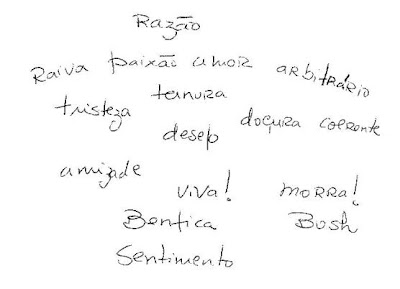 Razão
Raiva paixão amor arbitrário
ternura
tristeza doçura coerente
desejo
amizade
viva! morra!
Benfica Bush
Sentimento